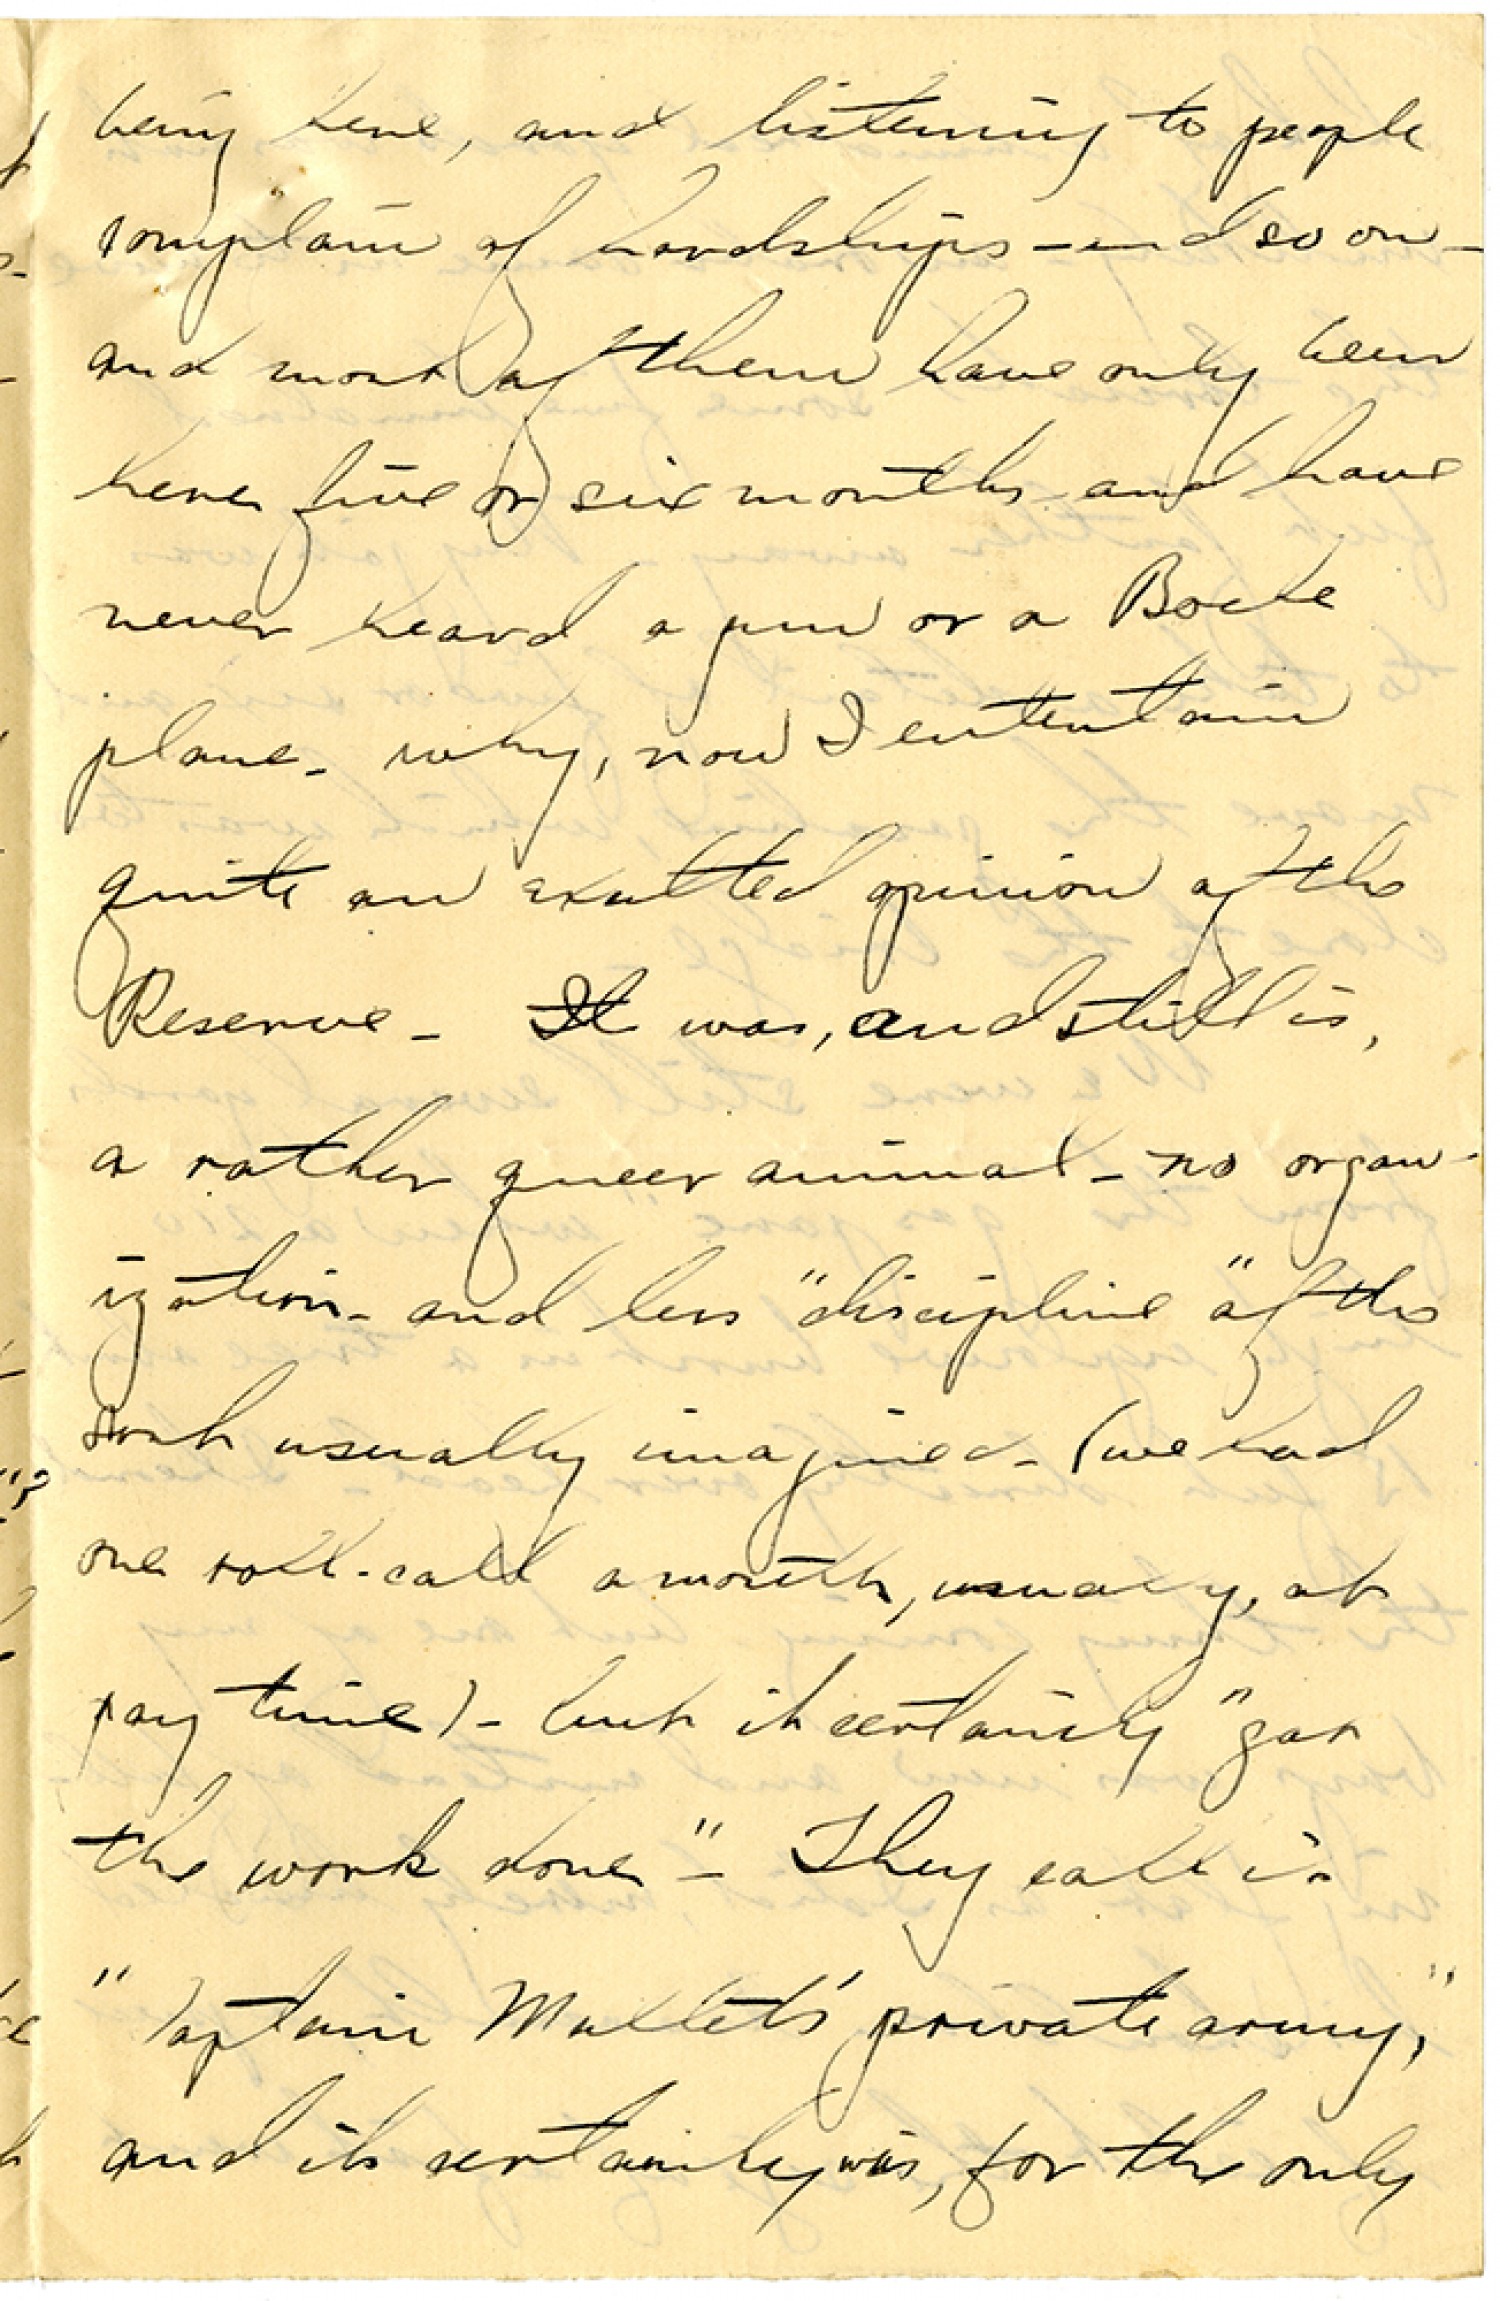 being here, and listening to people
complain of hardships - and so on -
and most of them have only been
here five or six months - and have
never heard a gun or a Boche
plane - why, now I entertain
quite an exalted opinion of the
Reserve - It was, and still is,
a rather queer animal - no organ-
ization - and less "discipline" of the
sort usually imagined - (we had
one roll-call a month, usually, at
pay time) - but it certainly "got
the work done" - They call it
"Captain Mallet's private army,"
and it certainly was, for the only